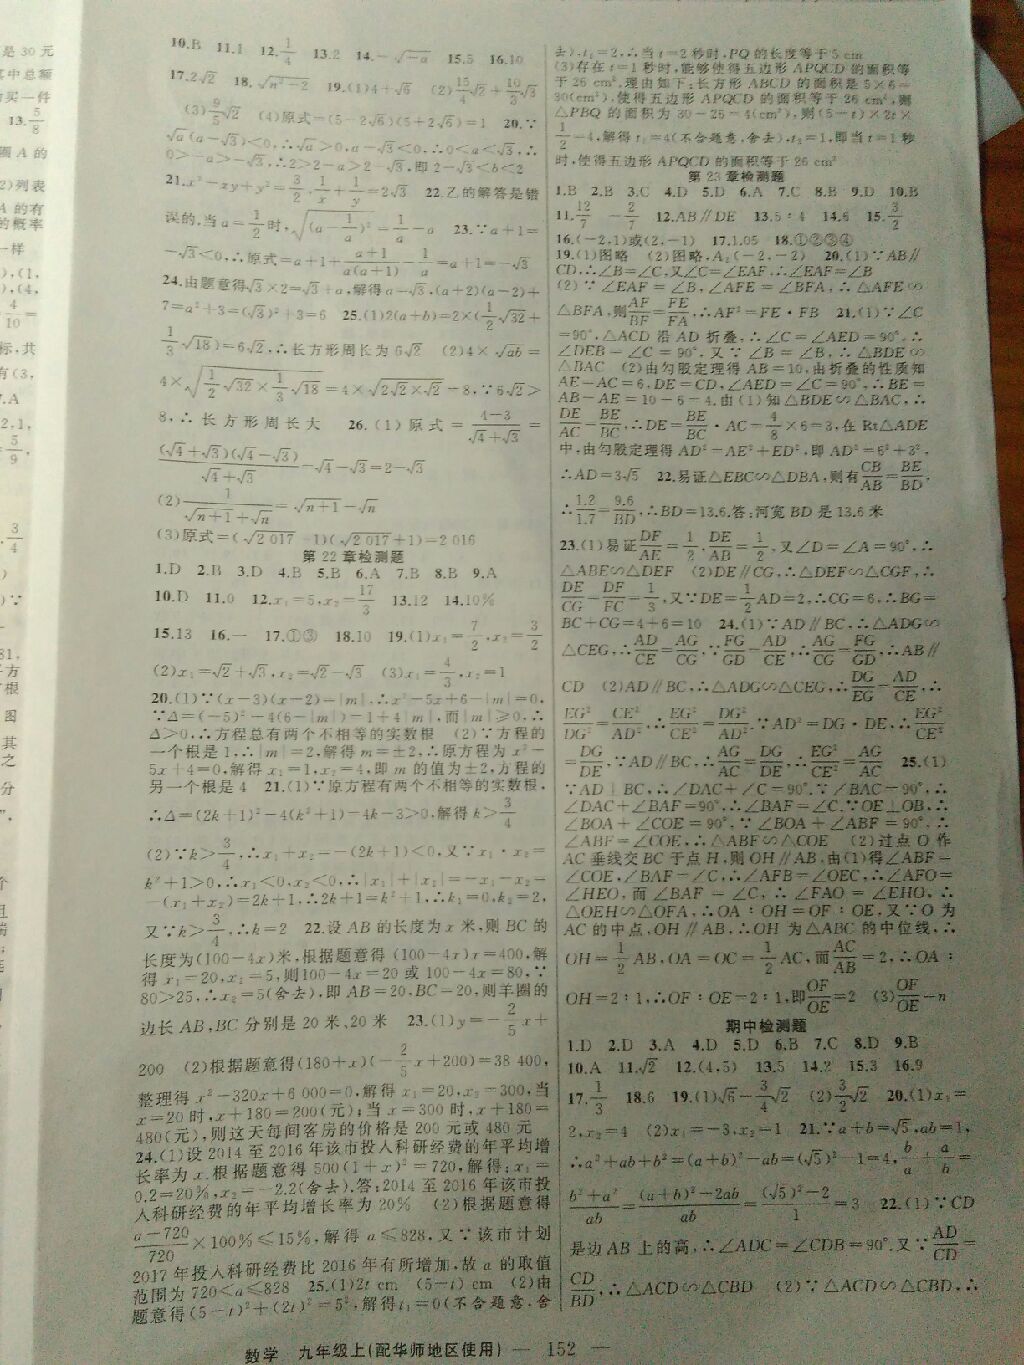 10.B 11.1 12.1/4 13.2 14.-√-a 15.5 16.10
17.2√2 18.√n²-2 19.(1)4+√6 (2)15/4√2+10/3√3
(3)9/5√2 (4)原式=(5-2√6)(5+2√6)=1 20.∵
√a(√a-√3)<0,∴√a>0,√a-√3<0,∴0<√a<√3,∴
21.x²-xy+y²=3/2,1/x+1/y=2√3 22.乙的解答是错
误的,当a=1/2时,√(a-1/a)²=1/a-a 23.∵a+1=
-√3<0,∴原式=a+1+a+1/a(a+1)-1/a=a+1=-√3
24.由题意得√3×2=√3+a,解得a=√3,(a+2)(a-2)+
7=a²+3=(√3)²+3=6 25.(1)2(a+b)=2×(1/2√32+
1/3√18)=6√2,∴长方形周长为6√2 (2)4×√ab=
4×√1/2√32×1/3√18=4×√2√2×√2=8,∵6√2>
8,∴长方形周长大 26.(1)原式=4-3/√4+√3=
(√4+√3)(√4-√3)/√4+√3=√4-√3=2-√3
(2)1/√n+1+√n=√n+1-√n
(3)原式=(√2 017-1)(√2 017+1)=2 016
第22章检测题
1.D 2.B 3.D 4.B 5.B 6.A 7.B 8.B 9.A
10.D 11.0 12.x₁=5,x₂=17/3 13.12 14.10%
15.13 16.一 17.①③ 18.10 19.(1)x₁=7/2,x₂=3/2
(2)x₁=√2+√3,x₂=√2-√3 (3)x₁=4/3,x₂=1
20.(1)∵(x-3)(x-2)=|m|,∴x²-5x+6-|m|=0,
∵Δ=(-5)²-4(6-|m|)=1+4|m|,而|m|≥0,∴
Δ>0,∴方程总有两个不相等的实数根 (2)∵方程的
一个根是1,∴|m|=2,解得m=±2,∴原方程为x²-
5x+4=0,解得x₁=1,x₂=4,即m的值为±2,方程的
另一个根是4 21.(1)∵原方程有两个不相等的实数根,
∴Δ=(2k+1)²-4(k²+1)=4k-3>0,解得k>3/4
(2)∵k>3/4,∴x₁+x₂=-(2k+1)<0,又∵x₁·x₂=
k²+1>0,∴x₁<0,x₂<0,∴|x₁|+|x₂|=-x₁-x₂=
-(x₁+x₂)=2k+1,∴2k+1=k²+1,∴k₁=0,k₂=2,
又∵k>3/4,∴k=2 22.设AB的长度为x米,则BC的
长度为(100-4x)米,根据题意得(100-4x)x=400,解
得x₁=20,x₂=5,则100-4x=20或100-4x=80,∵
80>25,∴x₂=5(舍去),即AB=20,BC=20,则羊圈的
边长AB,BC分别是20米、20米 23.(1)y=-2/5x+
200 (2)根据题意得(180+x)(-2/5x+200)=38 400,
整理得x²-320x+6 000=0,解得x₁=20,x₂=300,当
x=20时,x+180=200(元);当x=300时,x+180=
480(元),则这天每间客房的价格是200元或480元
24.(1)设2014至2016年该市投入科研经费的年平均增
长率为x,根据题意得500(1+x)²=720,解得:x₁=
0.2=20%,x₂=-2.2(舍去).答:2014至2016年该市投
入科研经费的年平均增长率为20% (2)根据题意得
a-720/720×100%≤15%,解得a≤828,又∵该市计划
2017年投入科研经费比2016年有所增加,故a的取值
范围为720<a≤828 25.(1)2t cm (5-t) cm (2)由
题意得(5-t)²+(2t)²=5²,解得t₁=0(不合题意,舍
去),t₂=2,∴当t=2秒时,PQ的长度等于5 cm
(3)存在t=1秒时,能够使得五边形APQCD的面积等
于26 cm²,理由如下:长方形ABCD的面积是5×6=
30(cm²),使得五边形APQCD的面积等于26 cm²,则
△PBQ的面积为30-26=4(cm²),则(5-t)×2t×
1/2=4,解得t₁=4(不合题意,舍去),t₂=1,即当t=1秒
时,使得五边形APQCD的面积等于26 cm²
第23章检测题
1.B 2.B 3.C 4.D 5.D 6.A 7.C 8.B 9.D 10.B
11.12/7 -2/7 12.AB∥DE 13.5:4 14.6 15.3/2
16.(-2,1)或(2,-1) 17.1.05 18.①②③④
19.(1)图略 (2)图略,A₂(-2,-2) 20.(1)∵AB∥
CD,∴∠B=∠C,又∠C=∠EAF,∴∠EAF=∠B
(2)∵∠EAF=∠B,∠AFE=∠BFA,∴△AFE∽
△BFA,则AF/BF=FE/FA,∴AF²=FE·FB 21.(1)∵∠C
=90°,△ACD沿AD折叠,∴∠C=∠AED=90°,∴
∠DEB=∠C=90°,又∵∠B=∠B,∴△BDE∽
△BAC (2)由勾股定理得AB=10,由折叠的性质知
AE=AC=6,DE=CD,∠AED=∠C=90°,∴BE=
AB-AE=10-6=4,由(1)知△BDE∽△BAC,∴
DE/AC=BE/BC,∴DE=BE/BC·AC=4/8×6=3,在Rt△ADE
中,由勾股定理得AD²=AE²+ED²,即AD²=6²+3²,
∴AD=3√5 22.易证△EBC∽△DBA,则有CB/AB=BE/BD,
∴1.2/1.7=9.6/BD,∴BD=13.6.答:河宽BD是13.6米
23.(1)易证DF/AE=1/2,DE/AB=1/2,又∠D=∠A=90°,∴
△ABE∽△DEF (2)DE∥CG,∴△DEF∽△CGF,∴
DE/CG=DF/FC=1/3,又∵DE=1/2AD=2,∴CG=6,∴BG=
BC+CG=4+6=10 24.(1)∵AD∥BC,∴△ADG∽
△CEG,∴AD/CE=AG/CG,∵FG/GD=AD/CE,∴AG/CG=FG/GD,∴AB∥
CD (2)AD∥BC,∴△ADG∽△CEG,∴DG/EG=AD/CE,∴
EG²/DG²=CE²/AD²,∴EG²/CE²=DG²/AD²,∵AD²=DG·DE,∴EG²/CE²
=DG/DE,∵AD∥BC,∴AG/AC=DG/DE,∴EG²/CE²=AG/AC 25.(1)
∵AD⊥BC,∴∠DAC+∠C=90°,∵∠BAC=90°,∴
∠DAC+∠BAF=90°,∴∠BAF=∠C,∵OE⊥OB,∴
∠BOA+∠COE=90°,∵∠BOA+∠ABF=90°,∴
∠ABF=∠COE,∴△ABF∽△COE (2)过点O作
AC垂线交BC于点H,则OH∥AB,由(1)得∠ABF=
∠COE,∠BAF=∠C,∴∠AFB=∠OEC,∴∠AFO=
∠HEO,而∠BAF=∠C,∴∠FAO=∠EHO,∴
△OEH∽△OFA,∴OA:OH=OF:OE,又∵O为
AC的中点,OH∥AB,∴OH为△ABC的中位线,∴
OH=1/2AB,OA=OC=1/2AC,而AC/AB=2,∴OA:
OH=2:1,∴OF:OE=2:1,即OF/OE=2 (3)OF/OE=n
期中检测题
1.D 2.D 3.A 4.D 5.D 6.B 7.C 8.D 9.B
10.A 11.√2 12.(4,5) 13.5 14.2 15.3 16.9
17.1/3 18.6 19.(1)√6-3/4√2 (2)3/2√2 20.(1)x₁=
2,x₂=4 (2)x₁=-3,x₂=1 21.∵a+b=√5,ab=1,
∴a²+ab+b²=(a+b)²-ab=(√5)²-1=4,b/a+a/b=
b²+a²/ab=(a+b)²-2ab/ab=(√5)²-2/1=3 22.(1)∵CD
是边AB上的高,∴∠ADC=∠CDB=90°,又∵AD/CD=
CD/BD,∴△ACD∽△CBD (2)∵△ACD∽△CBD,∴
数学 九年级上(配华师地区使用) — 152 —